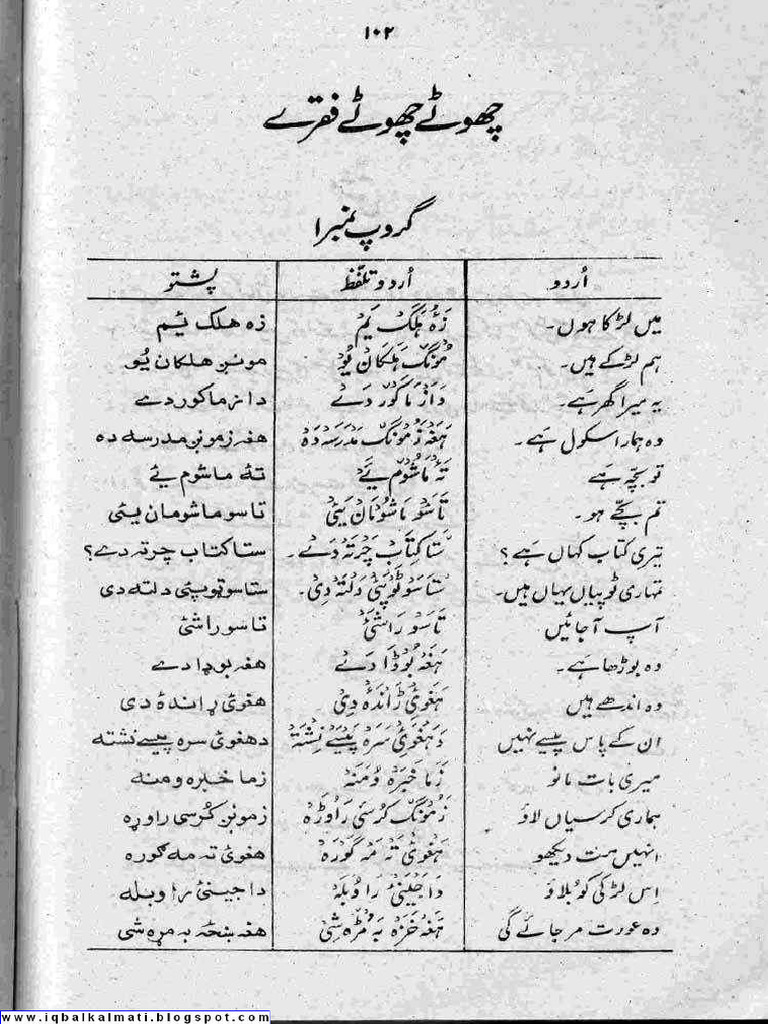 ۱۰۲
چھوٹے چھوٹے فقرے
گروپ نمبر ۱
اُردو	اُردو تلفّظ	پشتو
میں لڑکا ہوں۔	زَہ ہَلَک یَم	زه هلک یٔم
ہم لڑکے ہیں۔	مُونگ ہَلَکَان یُو	مونږ هلکان یُو
یہ میرا گھر ہَے۔	دَا زمَا کَور دَے	دا زما کور دے
وہ ہمارا سکول ہَے۔	ہَغَہ زَمُونگ مَدرَسَہ دَہ	هغه زمونږ مدرسه ده
تو بچّہ ہَے	تَہ مَاشُوم یَے	تهٔ ماشوم یٔے
تم بچّے ہو۔	تَاسَو مَاشُومَان یَئی	تاسو ماشومان یئی
تیری کتاب کہاں ہَے؟	سْتَا کِتَاب چَرتَہ دَے۔	ستا کتاب چرته دے؟
تمہاری ٹوپیاں یہاں ہیں۔	سْتَاسَو ٹَوپَئی دَلتَہ دِی۔	ستاسو ټوپئ دلته دی
آپ آجائیں	تَاسَو رَاشَئ	تاسو راشئ
وہ بوڑھا ہَے۔	ہَغَہ بُوڈَا دَے	هغه بوډا دے
وہ اندھے ہیں	ہَغوئ ڑَاندَہ دِی	هغوئ ړاندۀ دی
ان کے پاس پیسے نہیں	دَ ہَغوئ سَرَہ پَیسے نِشتَہ	د هغوئ سره پیسے نشته
میری بات مانو	زَمَا خَبرَہ وُمَنَہ	زما خبره ومنه
ہماری کرسیاں لاؤ	زَمُونگ کُرسَی رَاوڑَہ	زمونږ کُرسی راوړه
انہیں مت دیکھو	ہَغوئ تَہ مَہ گورَہ	هغوئ ته مه ګوره
اِس لڑکی کو بُلاؤ	دَا جِینَئ رَاوُبلَہ	دا جینئ راوبله
وہ عورت مر جائے گی	ہَغَہ خَزَہ بَہ مَڑَہ شِی	هغه ښځه به مړه شی
www.iqbalkalmati.blogspot.com